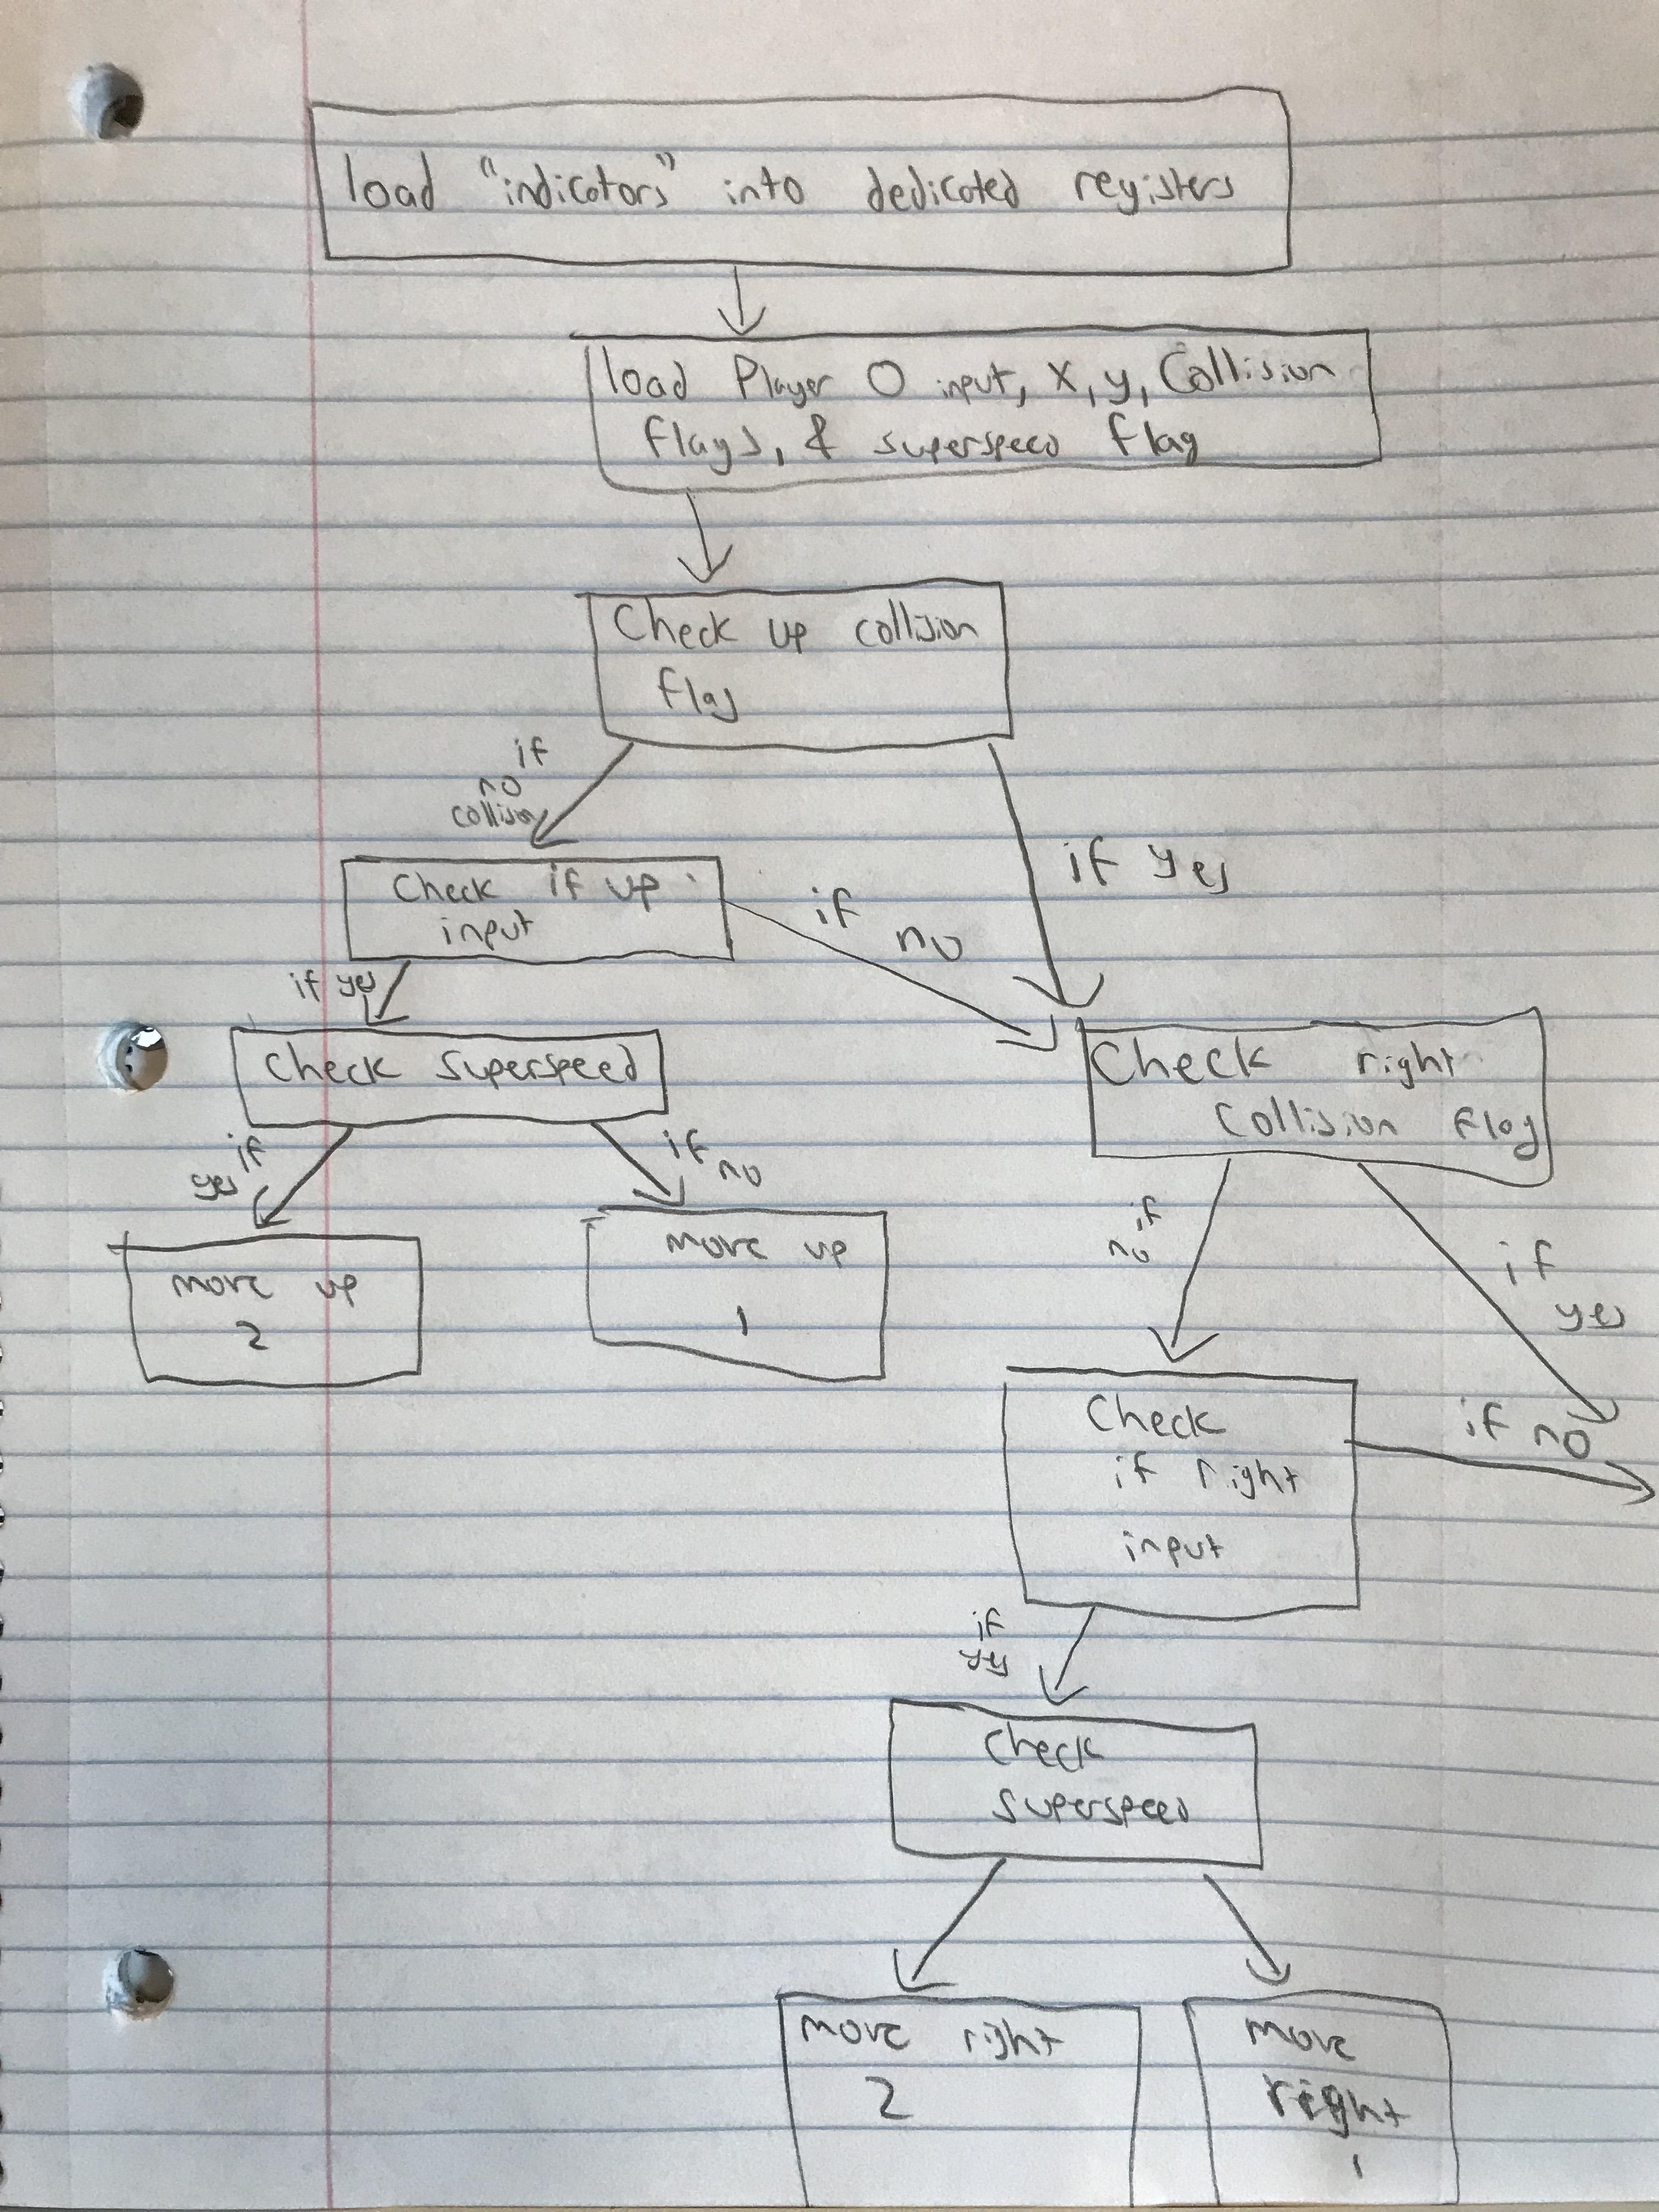 load "indicators" into dedicated registers
load Player 0 input, x, y, Collision
flags, & superspeed flag
Check up collision
flag
if
no
collision
if yes
Check if up
input
if
no
if yes
Check superspeed
Check right
Collision flag
if
yes
if
no
if
no
if
yes
move up
2
move up
1
Check
if right
input
if no
if
yes
Check
superspeed
move right
2
move
right
1